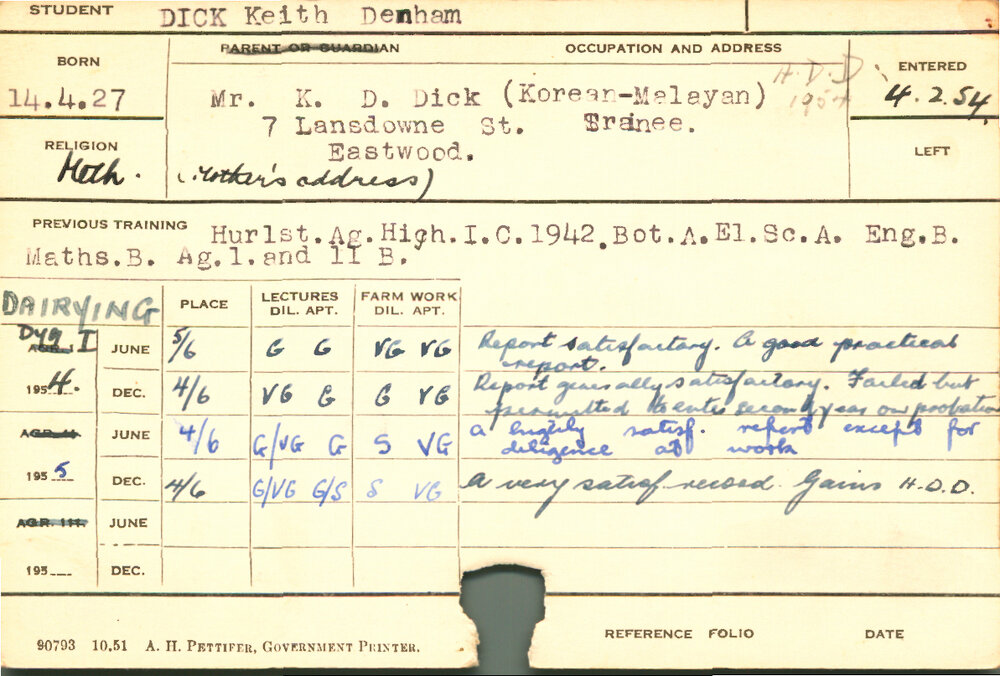 STUDENT DICK Keith Denham
BORN PARENT OR GUARDIAN OCCUPATION AND ADDRESS ENTERED
14.4.27 Mr. K. D. Dick (Korean-Malayan) A.D.D. 1954 4.2.54.
7 Lansdowne St. Trainee.
Eastwood.
RELIGION LEFT
Meth. (Mother's address)
PREVIOUS TRAINING Hurlst.Ag.High.I.C.1942.Bot.A.El.Sc.A. Eng.B.
Maths.B. Ag.1.and 11 B.
DAIRYING PLACE LECTURES FARM WORK
DIL. APT. DIL. APT.
Dyg I
AGR. I. JUNE 5/6 G G VG VG Report satisfactory. A good practical
report.
1954. DEC. 4/6 VG G G VG Report generally satisfactory. Failed but
permitted to enter second year on probation
AGR. II. JUNE 4/6 G/VG G S VG a highly satisf. report except for
diligence at work
1955 DEC. 4/6 G/VG G/S S VG A very satisf record. Gains H.D.D.
AGR. III. JUNE
195 DEC.
REFERENCE FOLIO DATE
90793 10.51 A. H. PETTIFER, GOVERNMENT PRINTER.